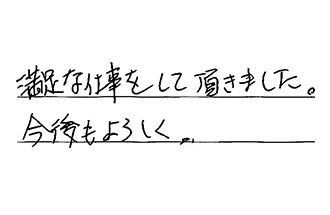 満足な仕事をして頂きました。
今後もよろしく。